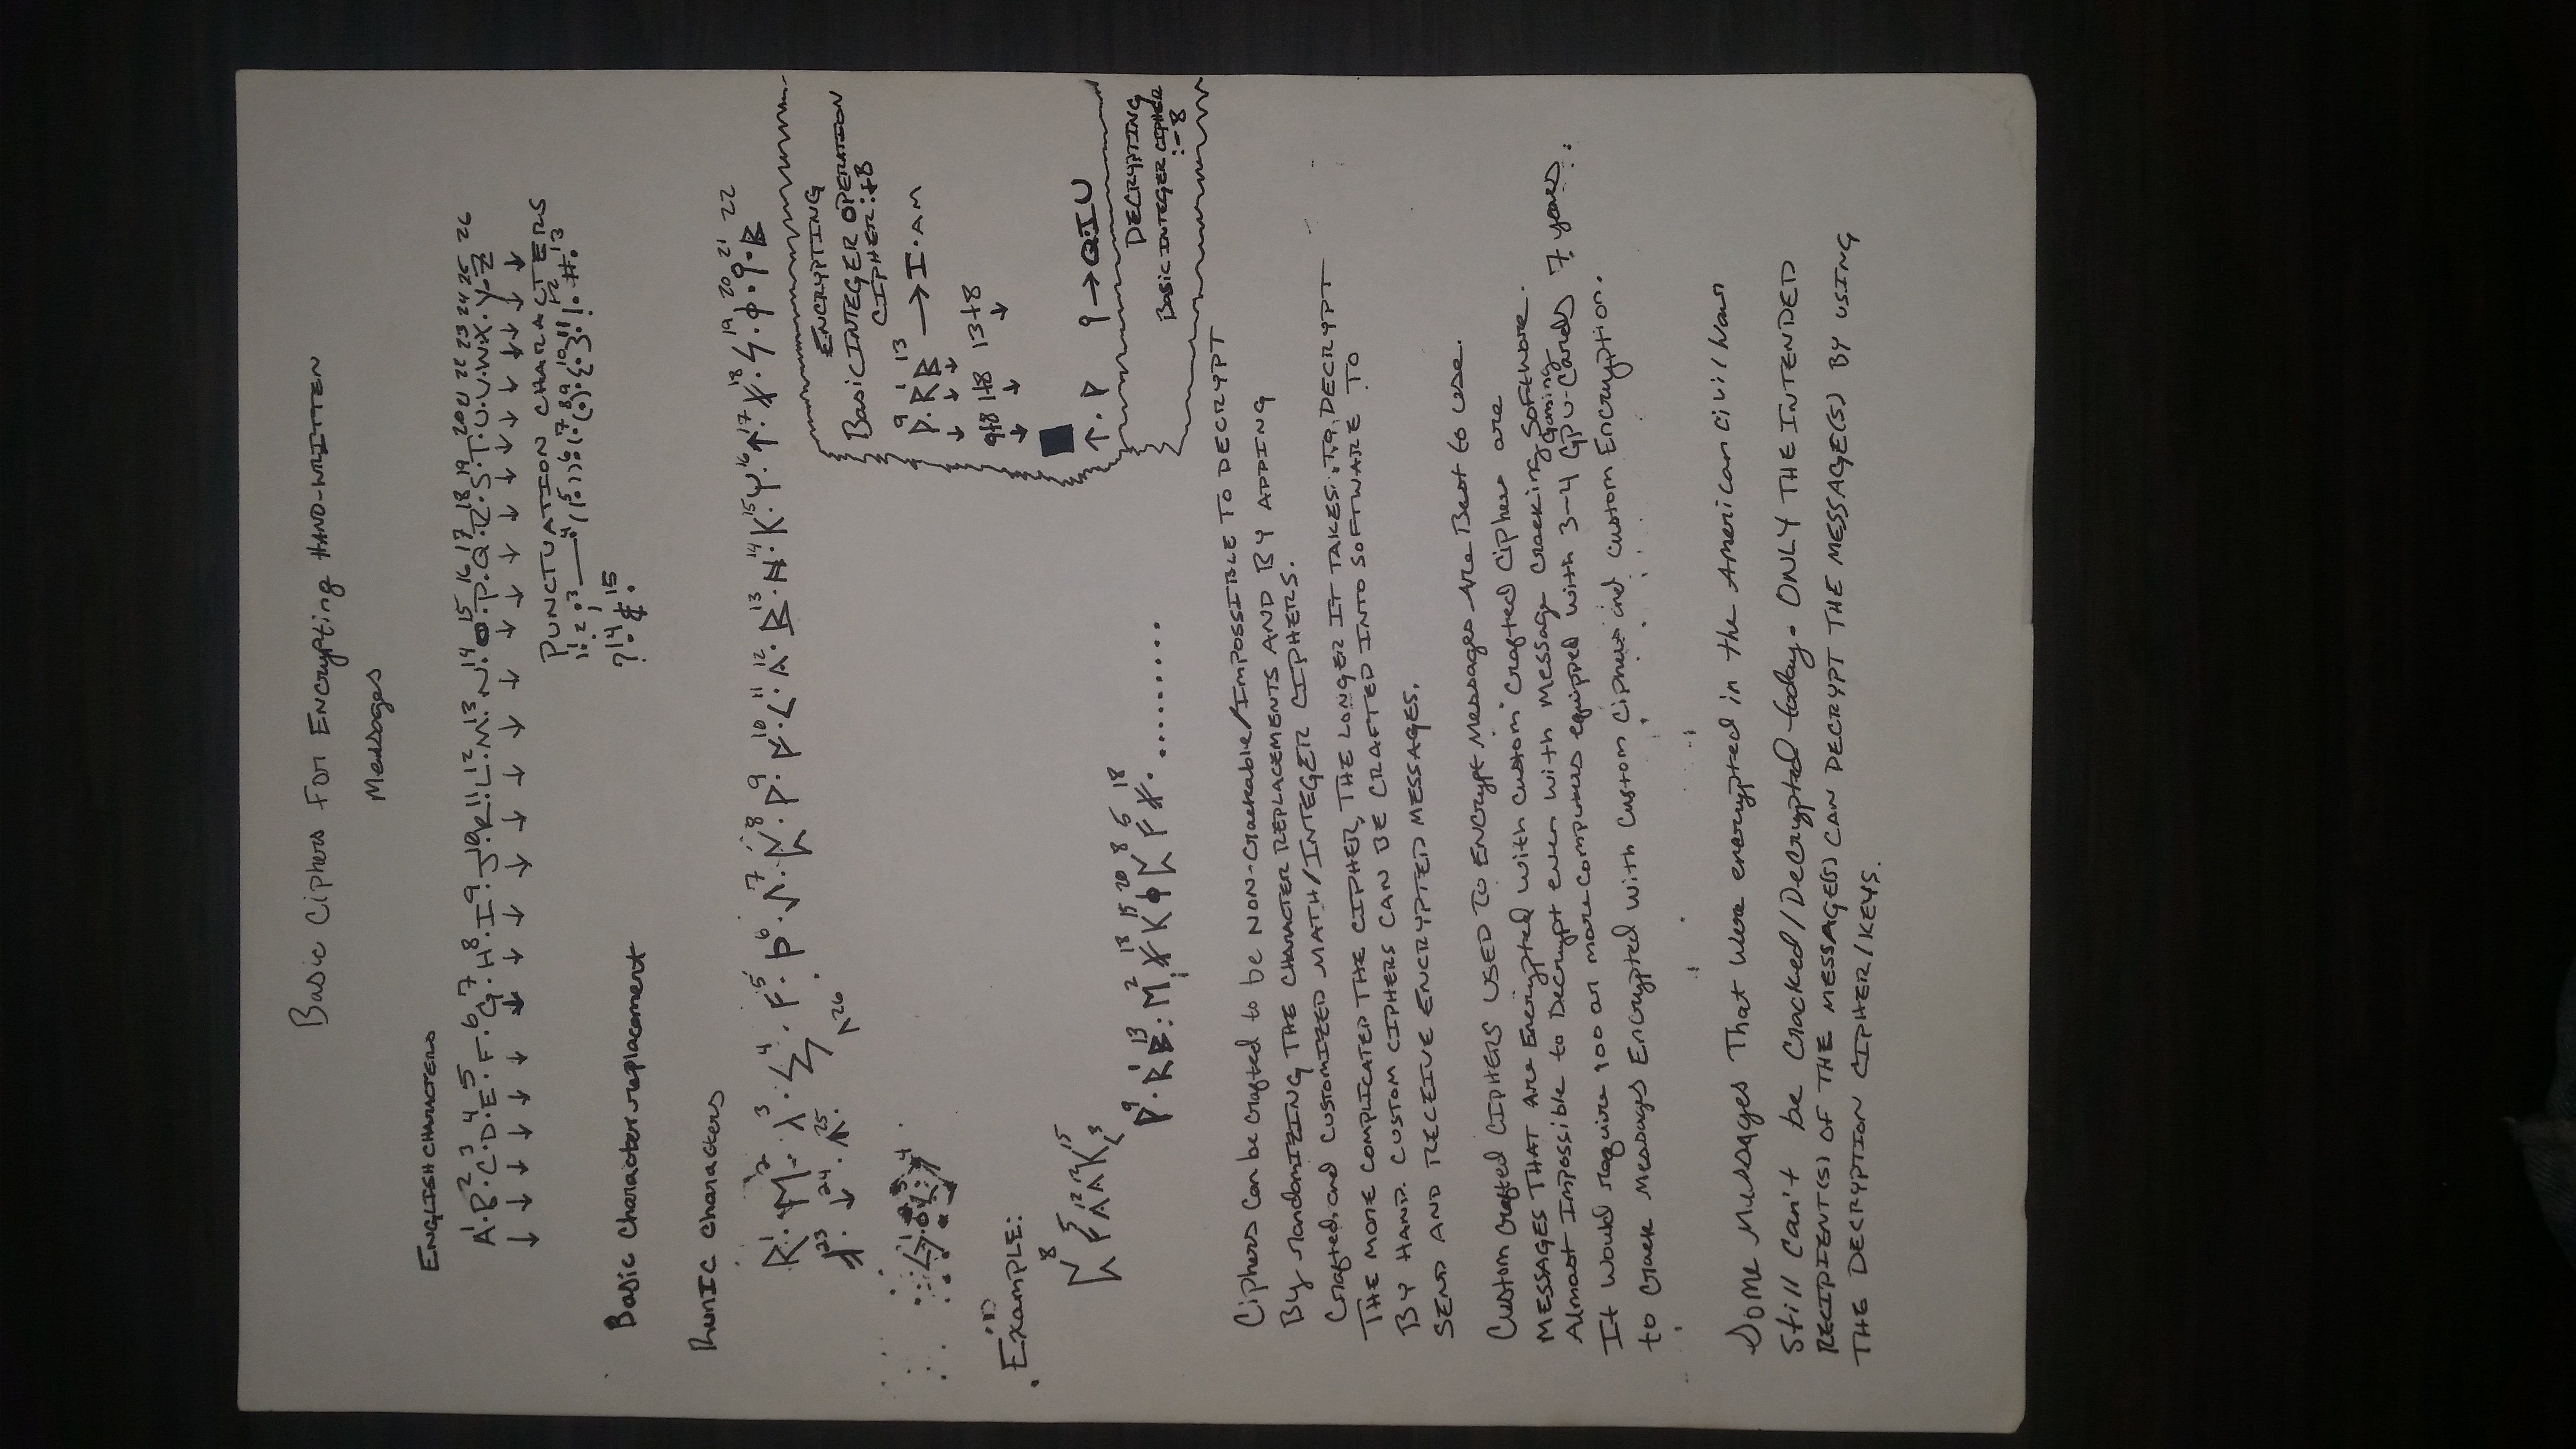 Basic Ciphers For Encrypting HAND-WRITTEN
Messages
ENGLISH CHARACTERS
A.1 B.2 C.3 D.4 E.5 F.6 G.7 H.8 I.9 J.10 K.11 L.12 M.13 N.14 O.15 P.16 Q.17 R.18 S.19 T.20 U.21 V.22 W.23 X.24 Y.25 Z.26
PUNCTUATION CHARACTERS
?.14 &.15
Basic Character replacement
RunIC Characters
ENCRYPTING
Basic INTEGER OPERATION
CIPHER:+8
9 1 13
→ I.AM
9+8 1+8 13+8
→ QIU
DECRYPTING
Basic INTEGER CIPHER
:-8
Example:
8 5 12 12 15
9 1 13 2 18 15 20 8 5 18 .........
Ciphers can be crafted to be NON-Crackable/IMPOSSIBLE TO DECRYPT
By randomIZING THE CHARACTER REPLACEMENTS AND BY ADDING
Crafted and CUSTOMIZED MATH/INTEGER CIPHERS.
THE MORE COMPLICATED THE CIPHER, THE LONGER IT TAKES TO DECRYPT
BY HAND. CUSTOM CIPHERS CAN BE CRAFTED INTO SOFTWARE TO
SEND AND RECEIVE ENCRYPTED MESSAGES.
Custom Crafted CIPHERS USED TO Encrypt Messages Are Best to use.
MESSAGES THAT Are Encrypted with Custom Crafted Ciphers are
Almost Impossible to Decrypt even with Message Cracking Software.
It would require 100 or more computers equipped with 3-4 Gaming GPU-Cards 7 years
to Crack Messages Encrypted with Custom Ciphers and custom Encryption.
Some Messages That were encrypted in the American Civil War
Still Can't be Cracked/Decrypted today. ONLY THE INTENDED
RECIPIENT(S) OF THE MESSAGE(S) CAN DECRYPT THE MESSAGE(S) BY USING
THE DECRYPTION CIPHER/KEYS.